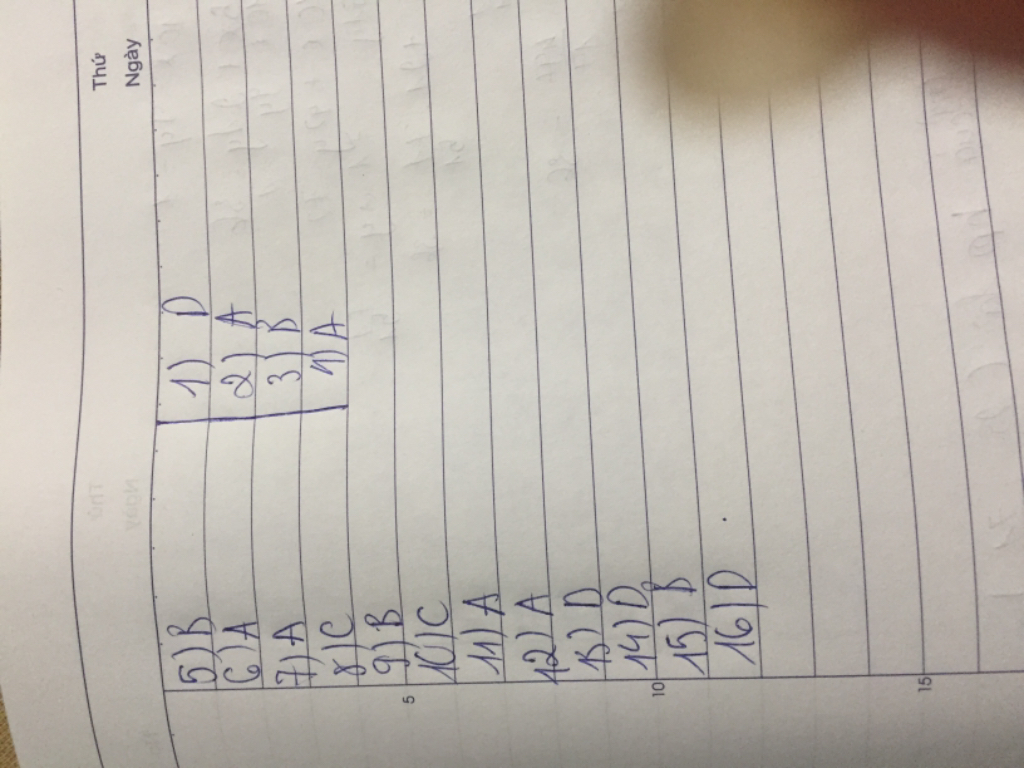 Thứ
Ngày
5) B
6) A
7) A
8) C
9) B
10) C
11) A
12) A
13) D
14) D
15) B
16) D
1) D
2) A
3) B
1) A
5
10
15